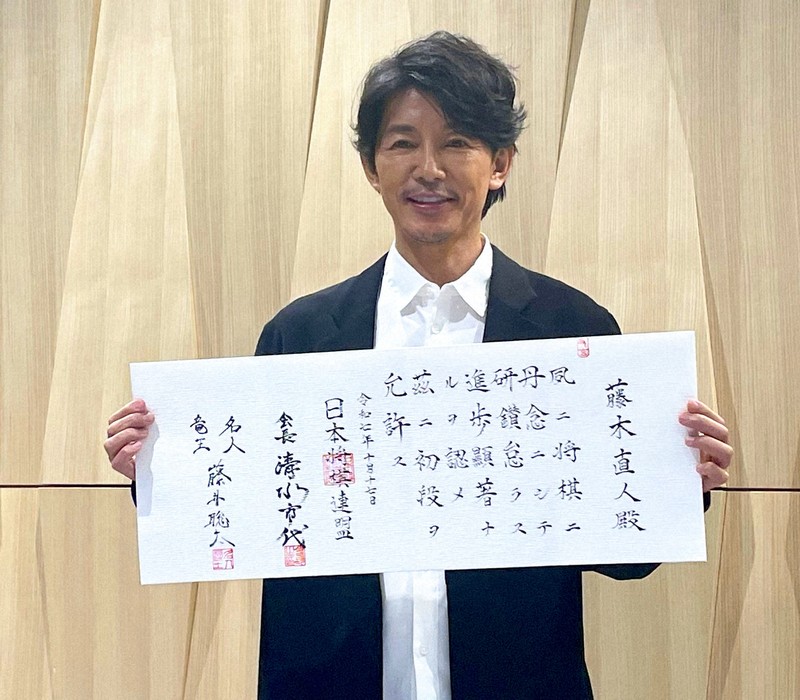 藤木直人殿
夙ニ将棋ニ
丹念ニシテ
研鑽怠ラス
進歩顕著ナ
ルヲ認メ
茲ニ初段ヲ
允許ス
令和七年十月十七日
日本将棋連盟
会長 清水市代
名人
竜王
藤井聡太